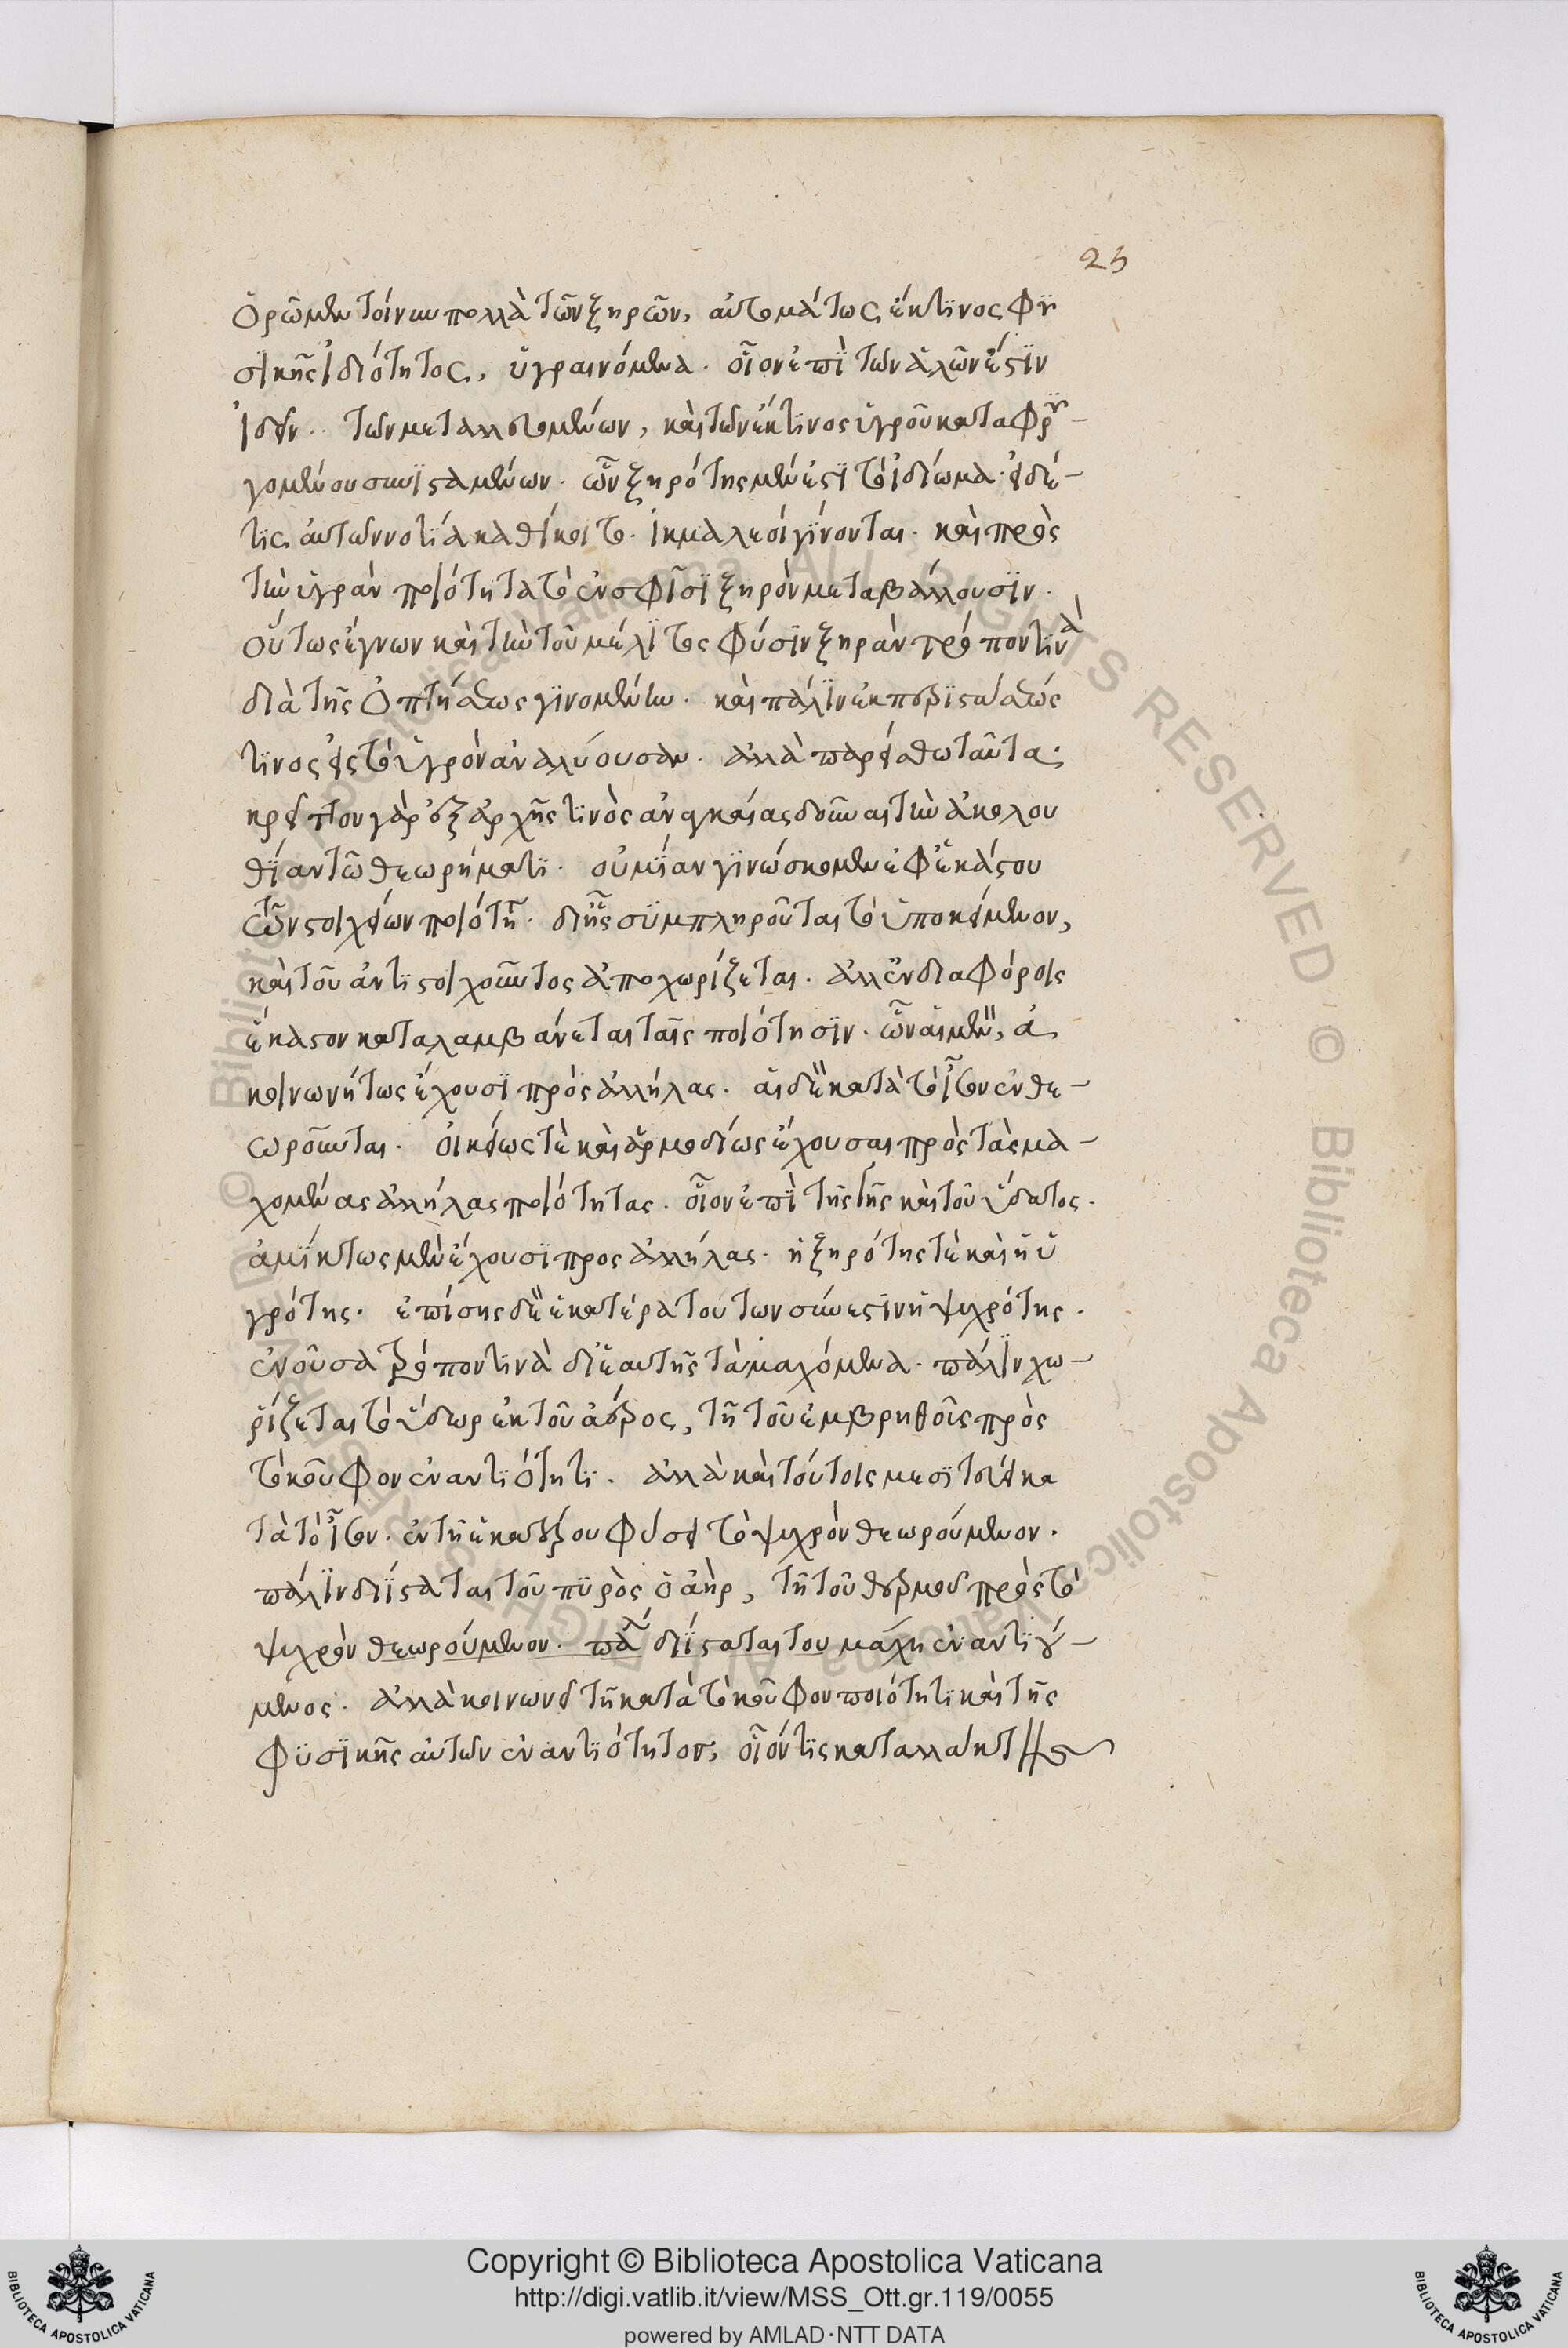 25
ὁρῶμεν τοίνυν πολλὰ τῶν ξηρῶν, αὐτομάτως ἔκ τινος φυ
σικῆς ἰδιότητος, ὑγραινόμενα. οἷον ἐπὶ τῶν ἁλῶν ἔστιν
ἰδεῖν.. τῶν μεταλλευομένων, καὶ τῶν ἔκ τινος ὑγροῦ κατα φρυ-
γομένου συνισταμένων. ὧν ξηρότης μέν ἐστι τὸ ἰδίωμα. εἰ δέ-
τις αὐτῶν νοτία καθίκοιτο. ἰκμαλέοι γίνονται. καὶ πρὸς
τὴν ὑγρὰν ποιότητα τὸ ἐν σφίσι ξηρὸν μεταβάλλουσιν.
οὕτως ἔγνων καὶ τὴν τοῦ μέλιτος φύσιν ξηρὰν τρόπον τινὰ
διὰ τῆς ὀπτήσεως γινομένην. καὶ πάλιν ἐκ περιστάσεώς
τινος εἰς τὸ ὑγρὸν ἀναλύουσαν. ἀλλὰ παρείσθω ταῦτα.
κρεῖττον γὰρ ἐξ ἀρχῆς τινὸς ἀναγκαίας δοῦναι τὴν ἀκολου
θίαν τῷ θεωρήματι. οὐ μίαν γινώσκομεν ἐφ ἑκάστου
τῶν στοιχείων ποιότητα. δι ἧς συμπληροῦται τὸ ὑποκείμενον,
καὶ τοῦ ἀντιστοιχοῦντος ἀποχωρίζεται. ἀλλ ἐν διαφόροις
ἕκαστον καταλαμβάνεται ταῖς ποιότησιν. ὧν αἱ μὲν, ἀ
κοινωνήτως ἔχουσι πρὸς ἀλλήλας. αἱ δὲ κατὰ τὸ ἴσον ἐνθε-
ωροῦνται. οἰκείως τὲ καὶ ἁρμοδίως ἔχουσαι πρὸς τὰς μα-
χομένας ἀλλήλας ποιότητας. οἷον ἐπὶ τῆς γῆς καὶ τοῦ ὕδατος.
ἀμίκτως μὲν ἔχουσι προς ἀλλήλας. ἡ ξηρότης τὲ καὶ ἡ ὑ
γρότης. ἐπίσης δὲ ἑκατέρα τουτων σύνεστιν ἡ ψυχρότης.
ἑνοῦσα τρόπον τινὰ δι ἑαυτῆς τὰ μαχόμενα. πάλιν χω-
ρίζεται τὸ ὕδωρ ἐκ τοῦ ἀέρος, τῇ τοῦ ἐμβρηθοῦς πρὸς
τὸ κοῦφον ἐναντιότητι. ἀλλὰ καὶ τούτοις μεσιτεύει κα
τὰ τὸ ἴσον. ἐν τῇ ἑκατέρου φύσει τὸ ψυχρὸν θεωρούμενον.
πάλιν διίσταται τοῦ πυρὸς ὁ ἀὴρ, τῇ τοῦ θερμοῦ πρὸς τὸ
ψυχρὸν θεωρούμενον. πάλ διίσταται του μάχη ἐναντιού-
μενος. ἀλλὰ κοινωνεῖ τῇ κατὰ τὸ κοῦφον ποιότητι καὶ τῆς
φυσικῆς αὐτῶν ἐναντιότητος, οἷόν τις καταλλακτ
Copyright © Biblioteca Apostolica Vaticana
http://digi.vatlib.it/view/MSS_Ott.gr.119/0055
powered by AMLAD·NTT DATA